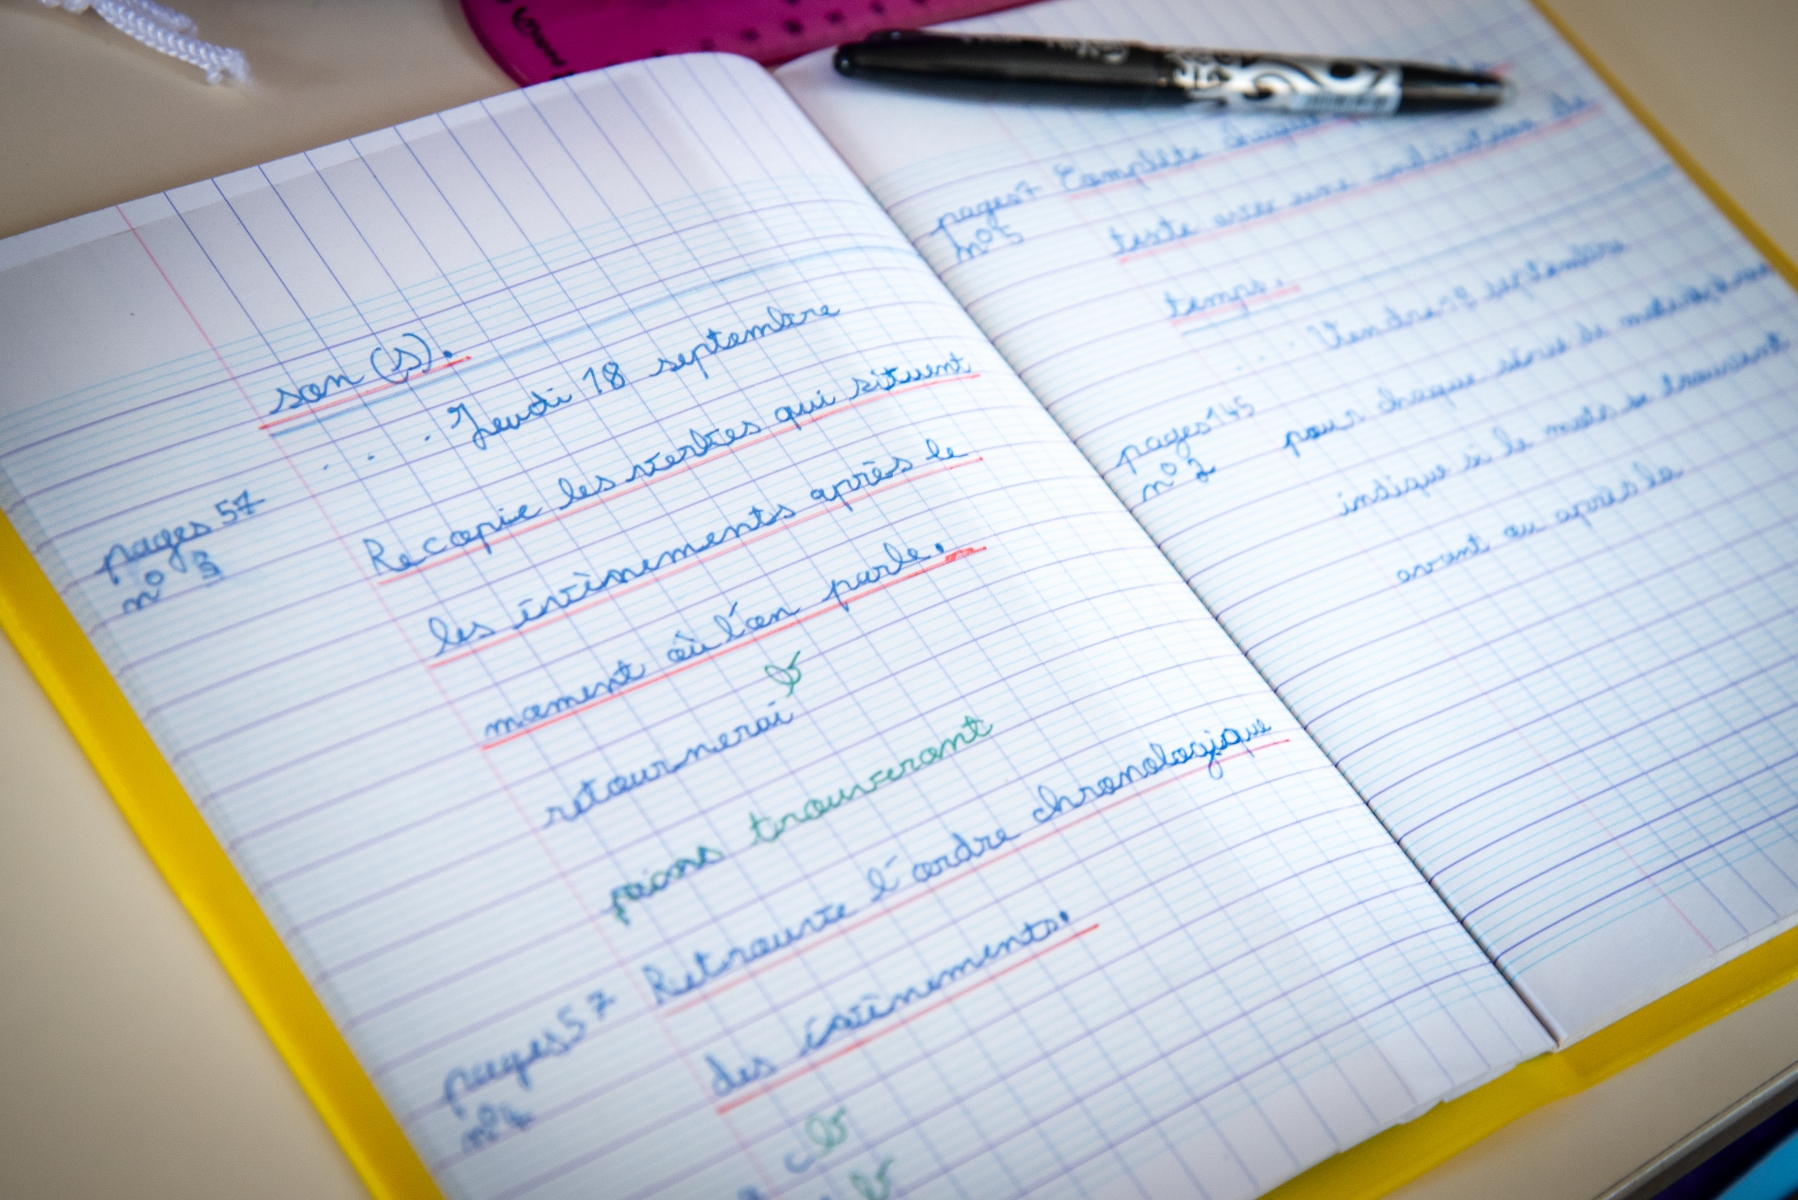 son (s).
Jeudi 18 septembre
pages 57
n° 3
Recopie les verbes qui situent
les évènements après le
moment où l'on parle.
retournerai
trouveront
pages 57
n° 4
Retrouve l'ordre chronologique
des évènements.
c
pages 57
n° 5
Complète chaque
texte avec une indication de
temps.
septembre
pages 145
n° 2
pour chaque série de
indique si le mots se trouvent
avant ou après la